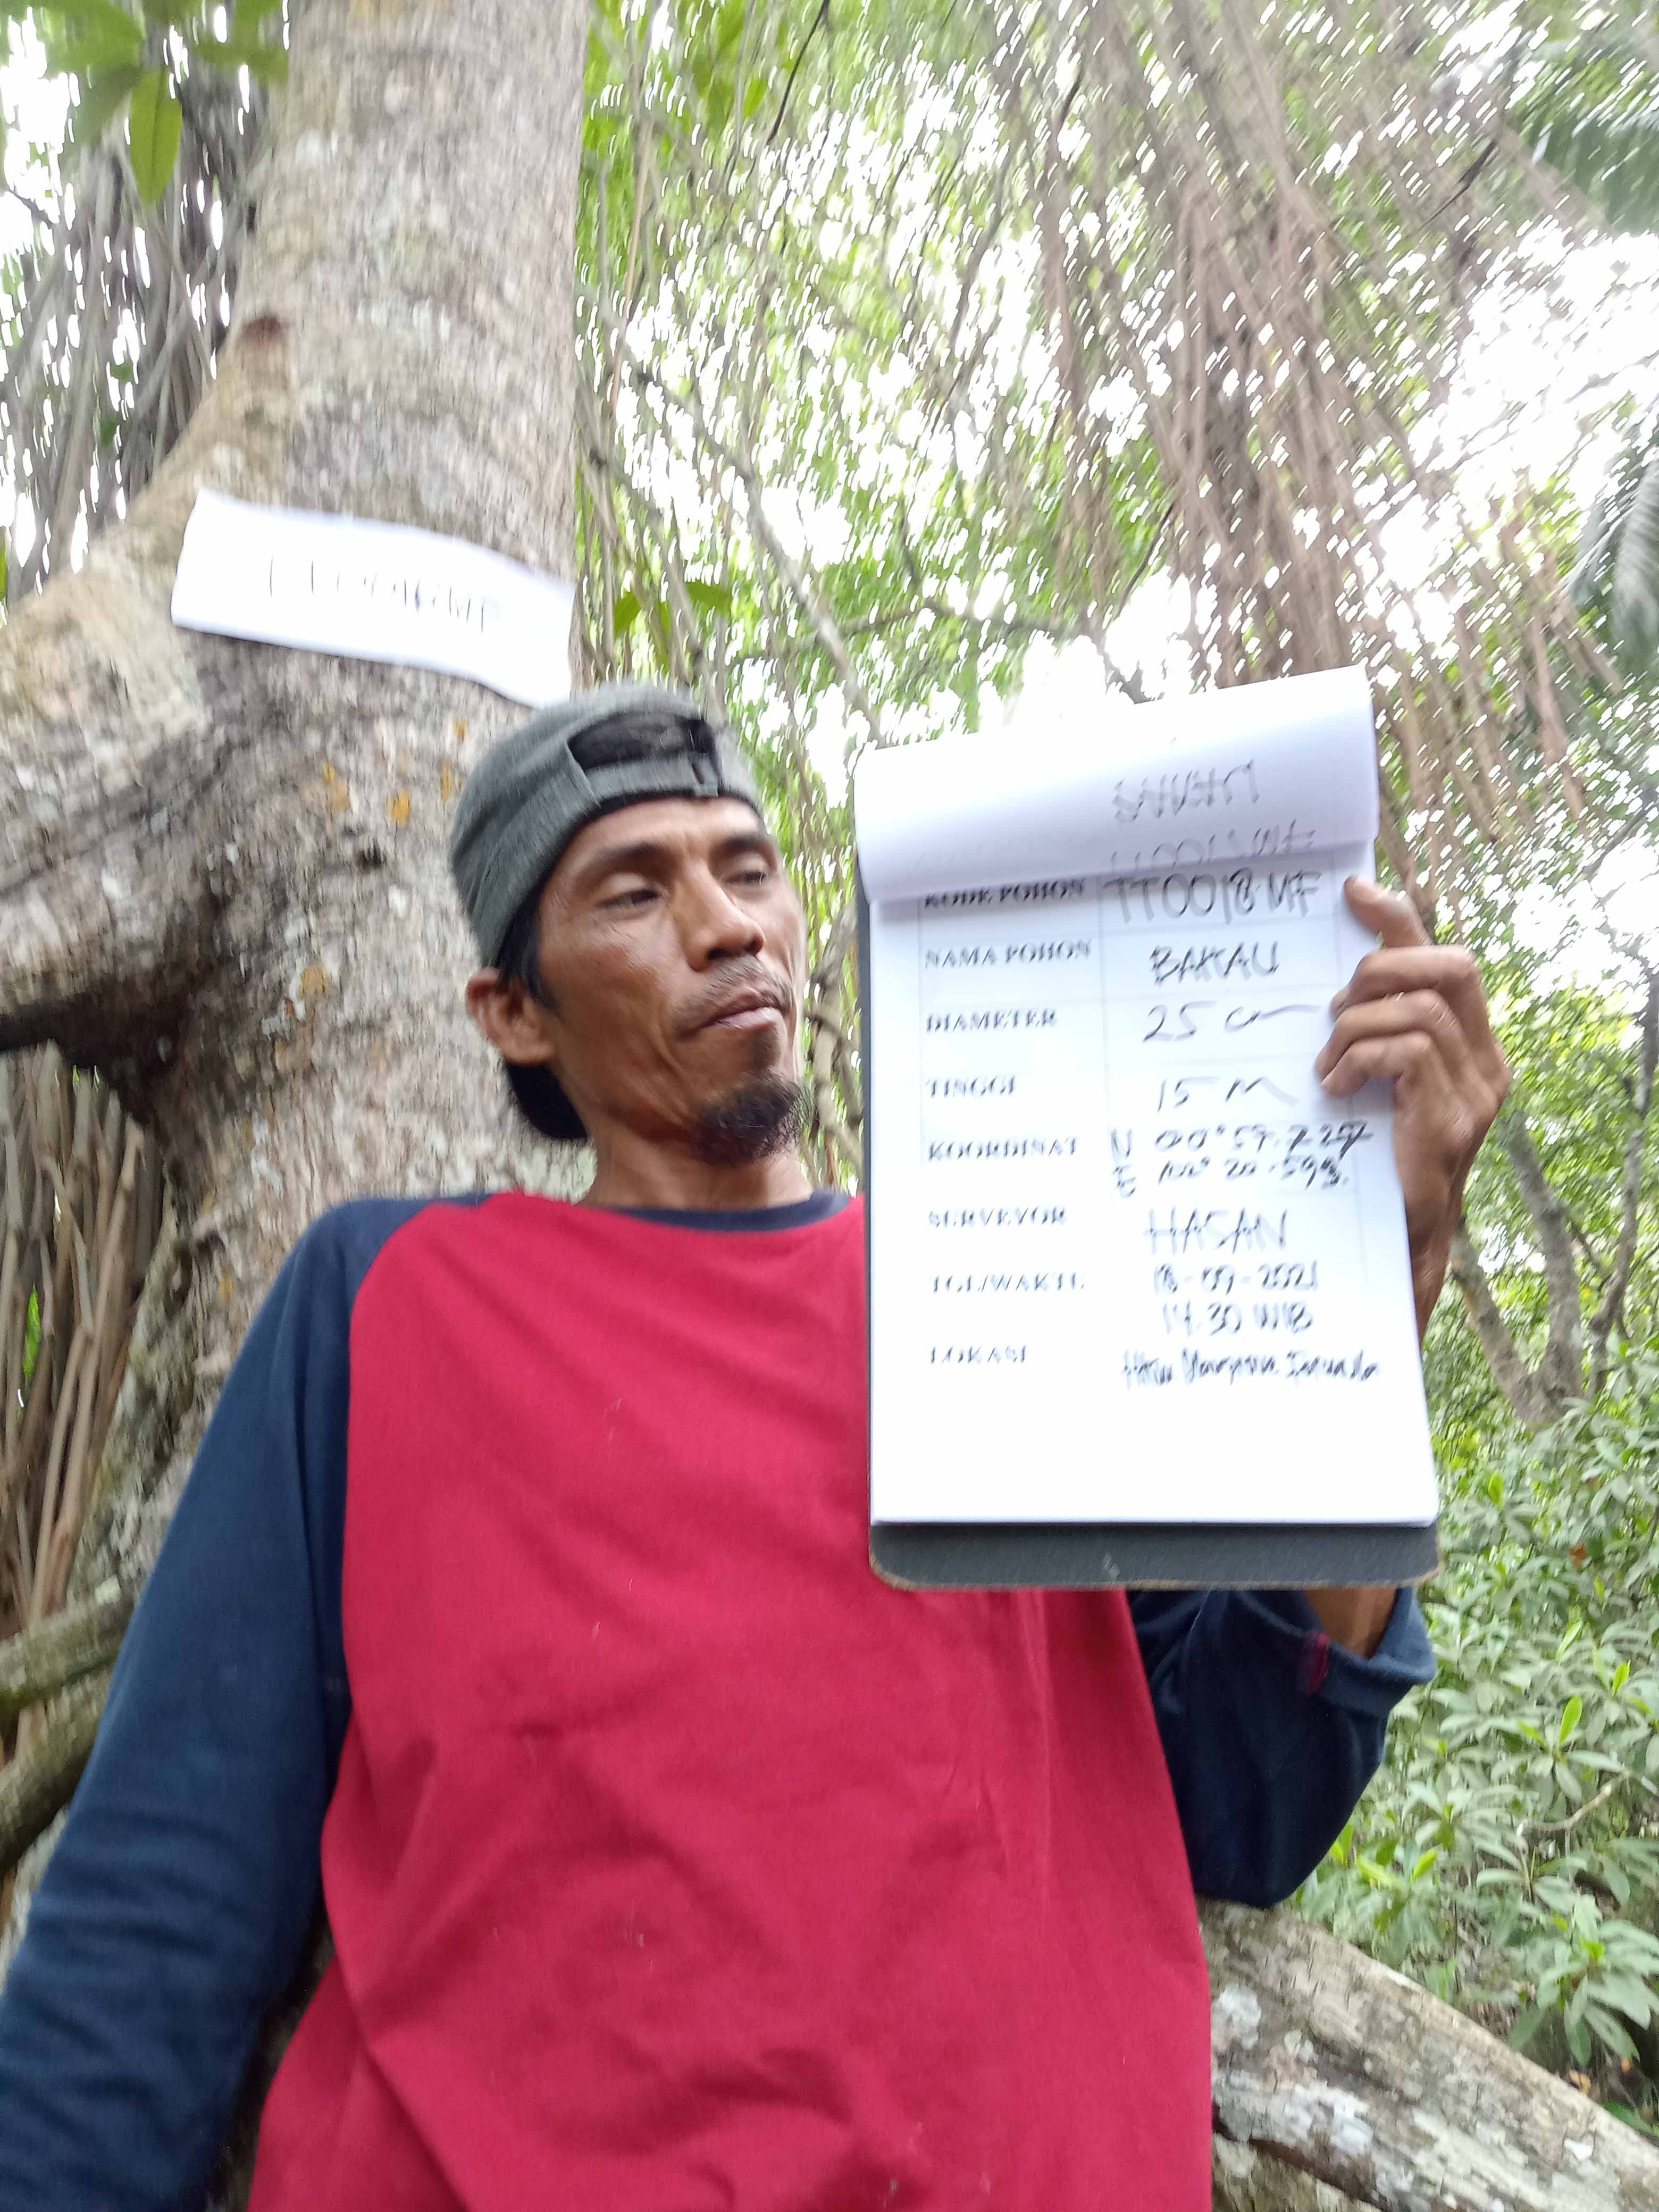 BAKAU
KODE POHON TT0018MF
NAMA POHON BAKAU
DIAMETER 25 cm
TINGGI 15 M
KOORDINAT N 00°59.
E 100° 20.593
SURVEYOR HASAN
TGL/WAKTU 18-09-2021
14.30 WIB
LOKASI Mangrove